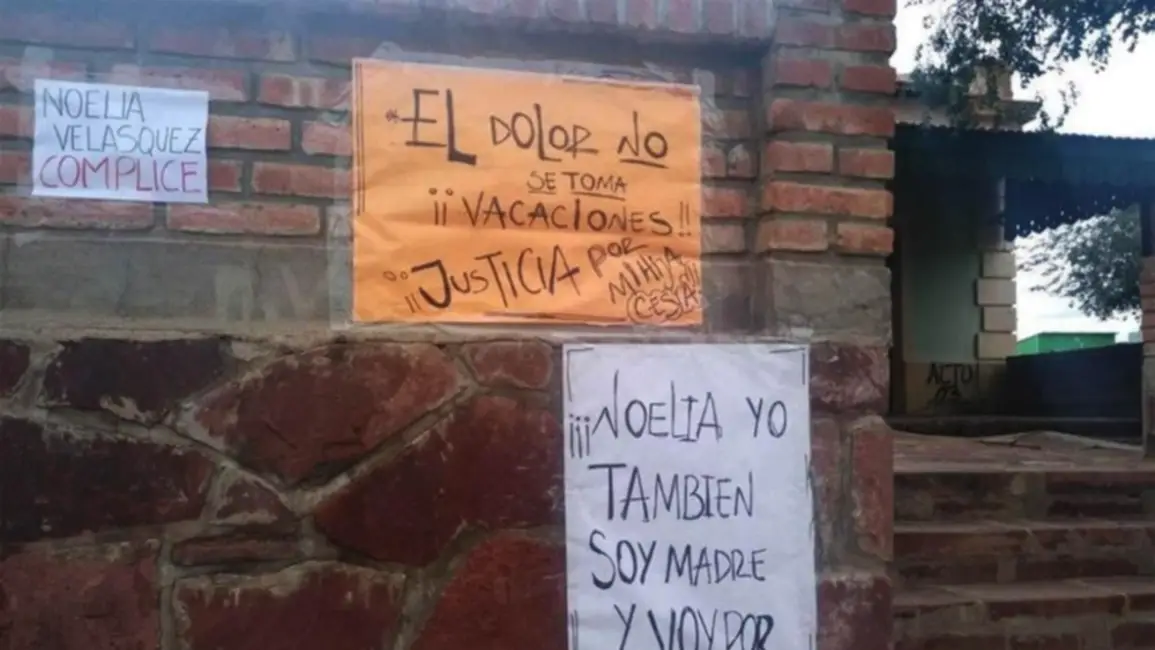 NOELIA
VELASQUEZ
COMPLICE
"EL DOLOR NO
SE TOMA
¡¡VACACIONES!!
¡¡JUSTICIA POR
MI HIJA
¡¡¡NOELIA YO
TAMBIEN
SOY MADRE
Y VOY POR